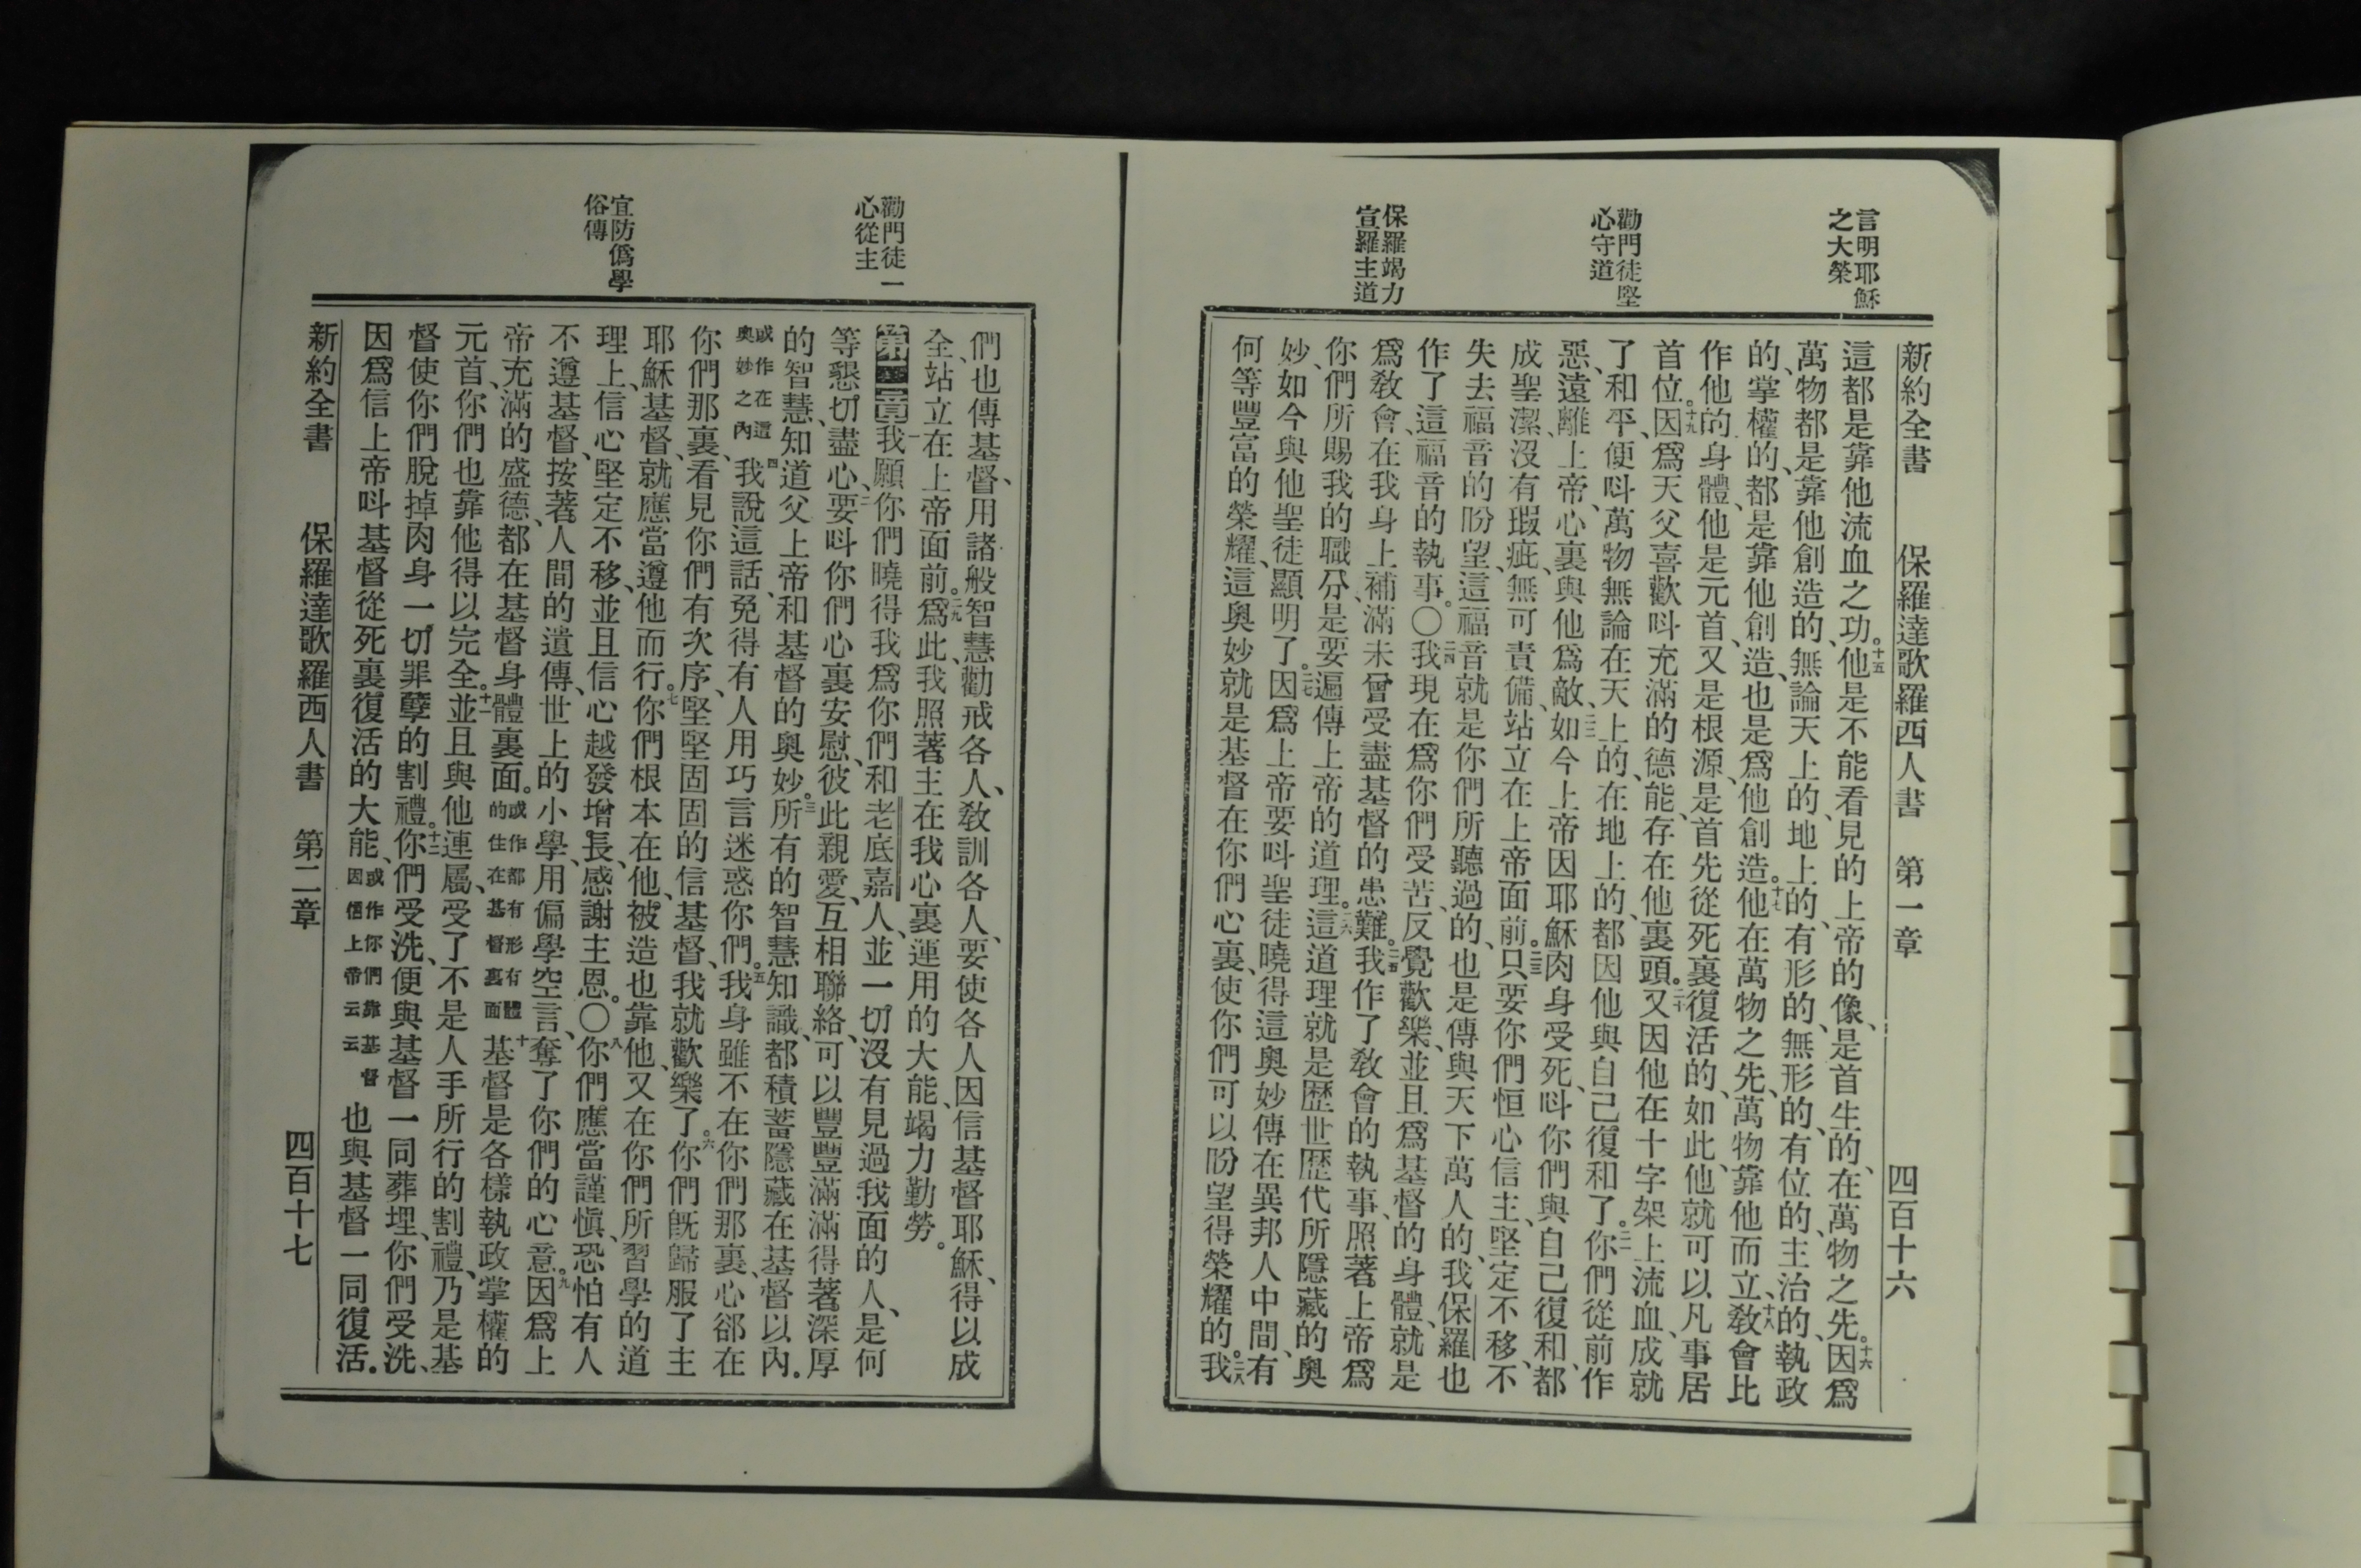 言明耶穌
之大榮
勸門徒堅
心守道
保羅竭力
宣羅主道
新約全書 保羅達歌羅西人書 第一章 四百十六
這都是靠他流血之功。十五他是不能看見的上帝的像、是首生的、在萬物之先。十六因爲
萬物都是靠他創造的、無論天上的、地上的、有形的、無形的、有位的、主治的、執政
的、掌權的、都是靠他創造、也是爲他創造。十七他在萬物之先、萬物靠他而立、十八教會比
作他的身體、他是元首、又是根源、是首先從死裏復活的、如此、他就可以凡事居
首位。十九因爲天父喜歡呌充滿的德能、存在他裏頭。二十又因他在十字架上流血、成就
了和平、便呌萬物無論在天上的、在地上的、都因他與自己復和了。二一你們從前作
惡、遠離上帝、心裏與他爲敵、二二如今上帝因耶穌肉身受死、呌你們與自己復和、都
成聖潔、沒有瑕疵、無可責備、站立在上帝面前。二三只要你們恒心信主、堅定不移、不
失去福音的盼望、這福音就是你們所聽過的、也是傳與天下萬人的、我保羅也
作了這福音的執事。〇二四我現在爲你們受苦、反覺歡樂、並且爲基督的身體、就是
爲教會、在我身上補滿未曾受盡基督的患難。二五我作了教會的執事、照著上帝爲
你們所賜我的職分、是要遍傳上帝的道理。二六這道理就是歷世歷代所隱藏的奧
妙、如今與他聖徒顯明了。二七因爲上帝要呌聖徒曉得這奧妙傳在異邦人中間、有
何等豐富的榮耀、這奧妙就是基督在你們心裏、使你們可以盼望得榮耀的。二八我
勸門徒一
心從主
宜防僞學
俗傳
們也傳基督、用諸般智慧勸戒各人、教訓各人、要使各人因信基督耶穌、得以成
全、站立在上帝面前。二九爲此、我照著主在我心裏運用的大能、竭力勤勞。
第二章 一我願你們曉得我爲你們和老底嘉人、並一切沒有見過我面的人、是何
等懇切、盡心、二要呌你們心裏安慰、彼此親愛、互相聯絡、可以豐豐滿滿得著深厚
的智慧、知道父上帝和基督的奧妙。三所有的智慧知識、都積蓄隱藏在基督以內。
或作在這奧妙之內 四我說這話、免得有人用巧言迷惑你們。五我身雖不在你們那裏、心卻在
你們那裏、看見你們有次序、堅堅固固的信基督、我就歡樂了。六你們旣歸服了主
耶穌基督、就應當遵他而行。七你們根本在他、被造也靠他、又在你們所習學的道
理上、信心堅定不移、並且信心越發增長、感謝主恩。〇八你們應當謹愼、恐怕有人
不遵基督、按著人間的遺傳、世上的小學、用偏學空言、奪了你們的心意。九因爲上
帝充滿的盛德、都在基督身體裏面。或作都有形有體的住在基督裏面 十基督是各樣執政掌權的
元首、你們也靠他得以完全。十一並且與他連屬、受了不是人手所行的割禮、乃是基
督使你們脫掉肉身一切罪孽的割禮。十二你們受洗、便與基督一同葬埋、你們受洗、
因爲信上帝呌基督從死裏復活的大能、或作你們靠基督因信上帝云云 也與基督一同復活。
新約全書 保羅達歌羅西人書 第二章 四百十七